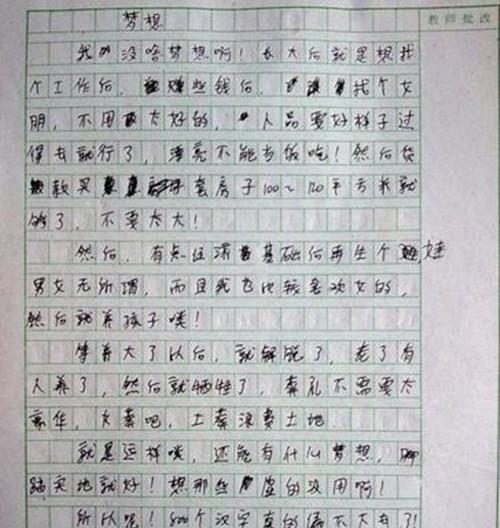 教师批改
梦想
我没啥梦想啊！长大后就是想找
个工作后，赚些钱后，找个女
朋，不用太好的，人品要好样子过
得去就行了，漂亮不能当饭吃！然后贷
款买套房子100~120平方米就
够了，不要太大！
然后，有点经济基础后再生个娃
男女无所谓，而且我也比较喜欢女的，
然后就养孩子喽！
等养大了以后，就解脱了，老了有
人养了，然后就牺牲了，葬礼不需要太
豪华，火葬吧，土葬浪费土地．
就是这样喽，还能有什么梦想，脚
踏实地就好！想那些虚的没用啊！
所以呢！800个汉字真的